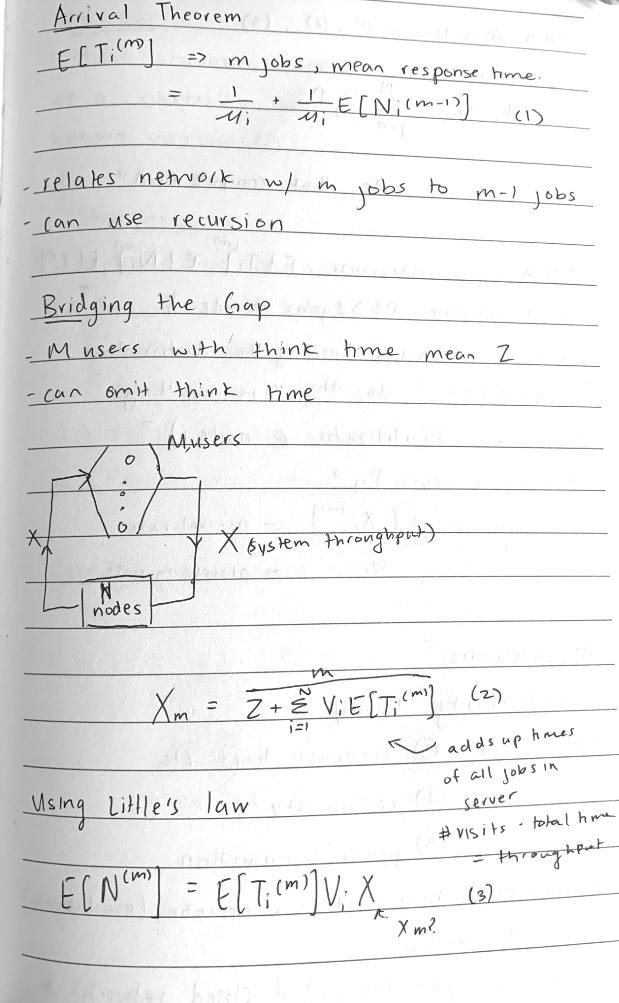 Arrival Theorem
E[Ti^(m)] => m jobs, mean response time.
= 1/μi + 1/μi E[Ni^(m-1)] (1)
- relates network w/ m jobs to m-1 jobs
- can use recursion
Bridging the Gap
- M users with think time mean Z
- can omit think time
M users
X
X (system throughput)
N
nodes
Xm = m / (Z + Σ_{i=1}^{N} Vi E[Ti^(m)]) (2)
adds up times
of all jobs in
server
# visits · total time
= throughput
Using Little's law
E[N^(m)] = E[Ti^(m)] Vi X (3)
Xm?